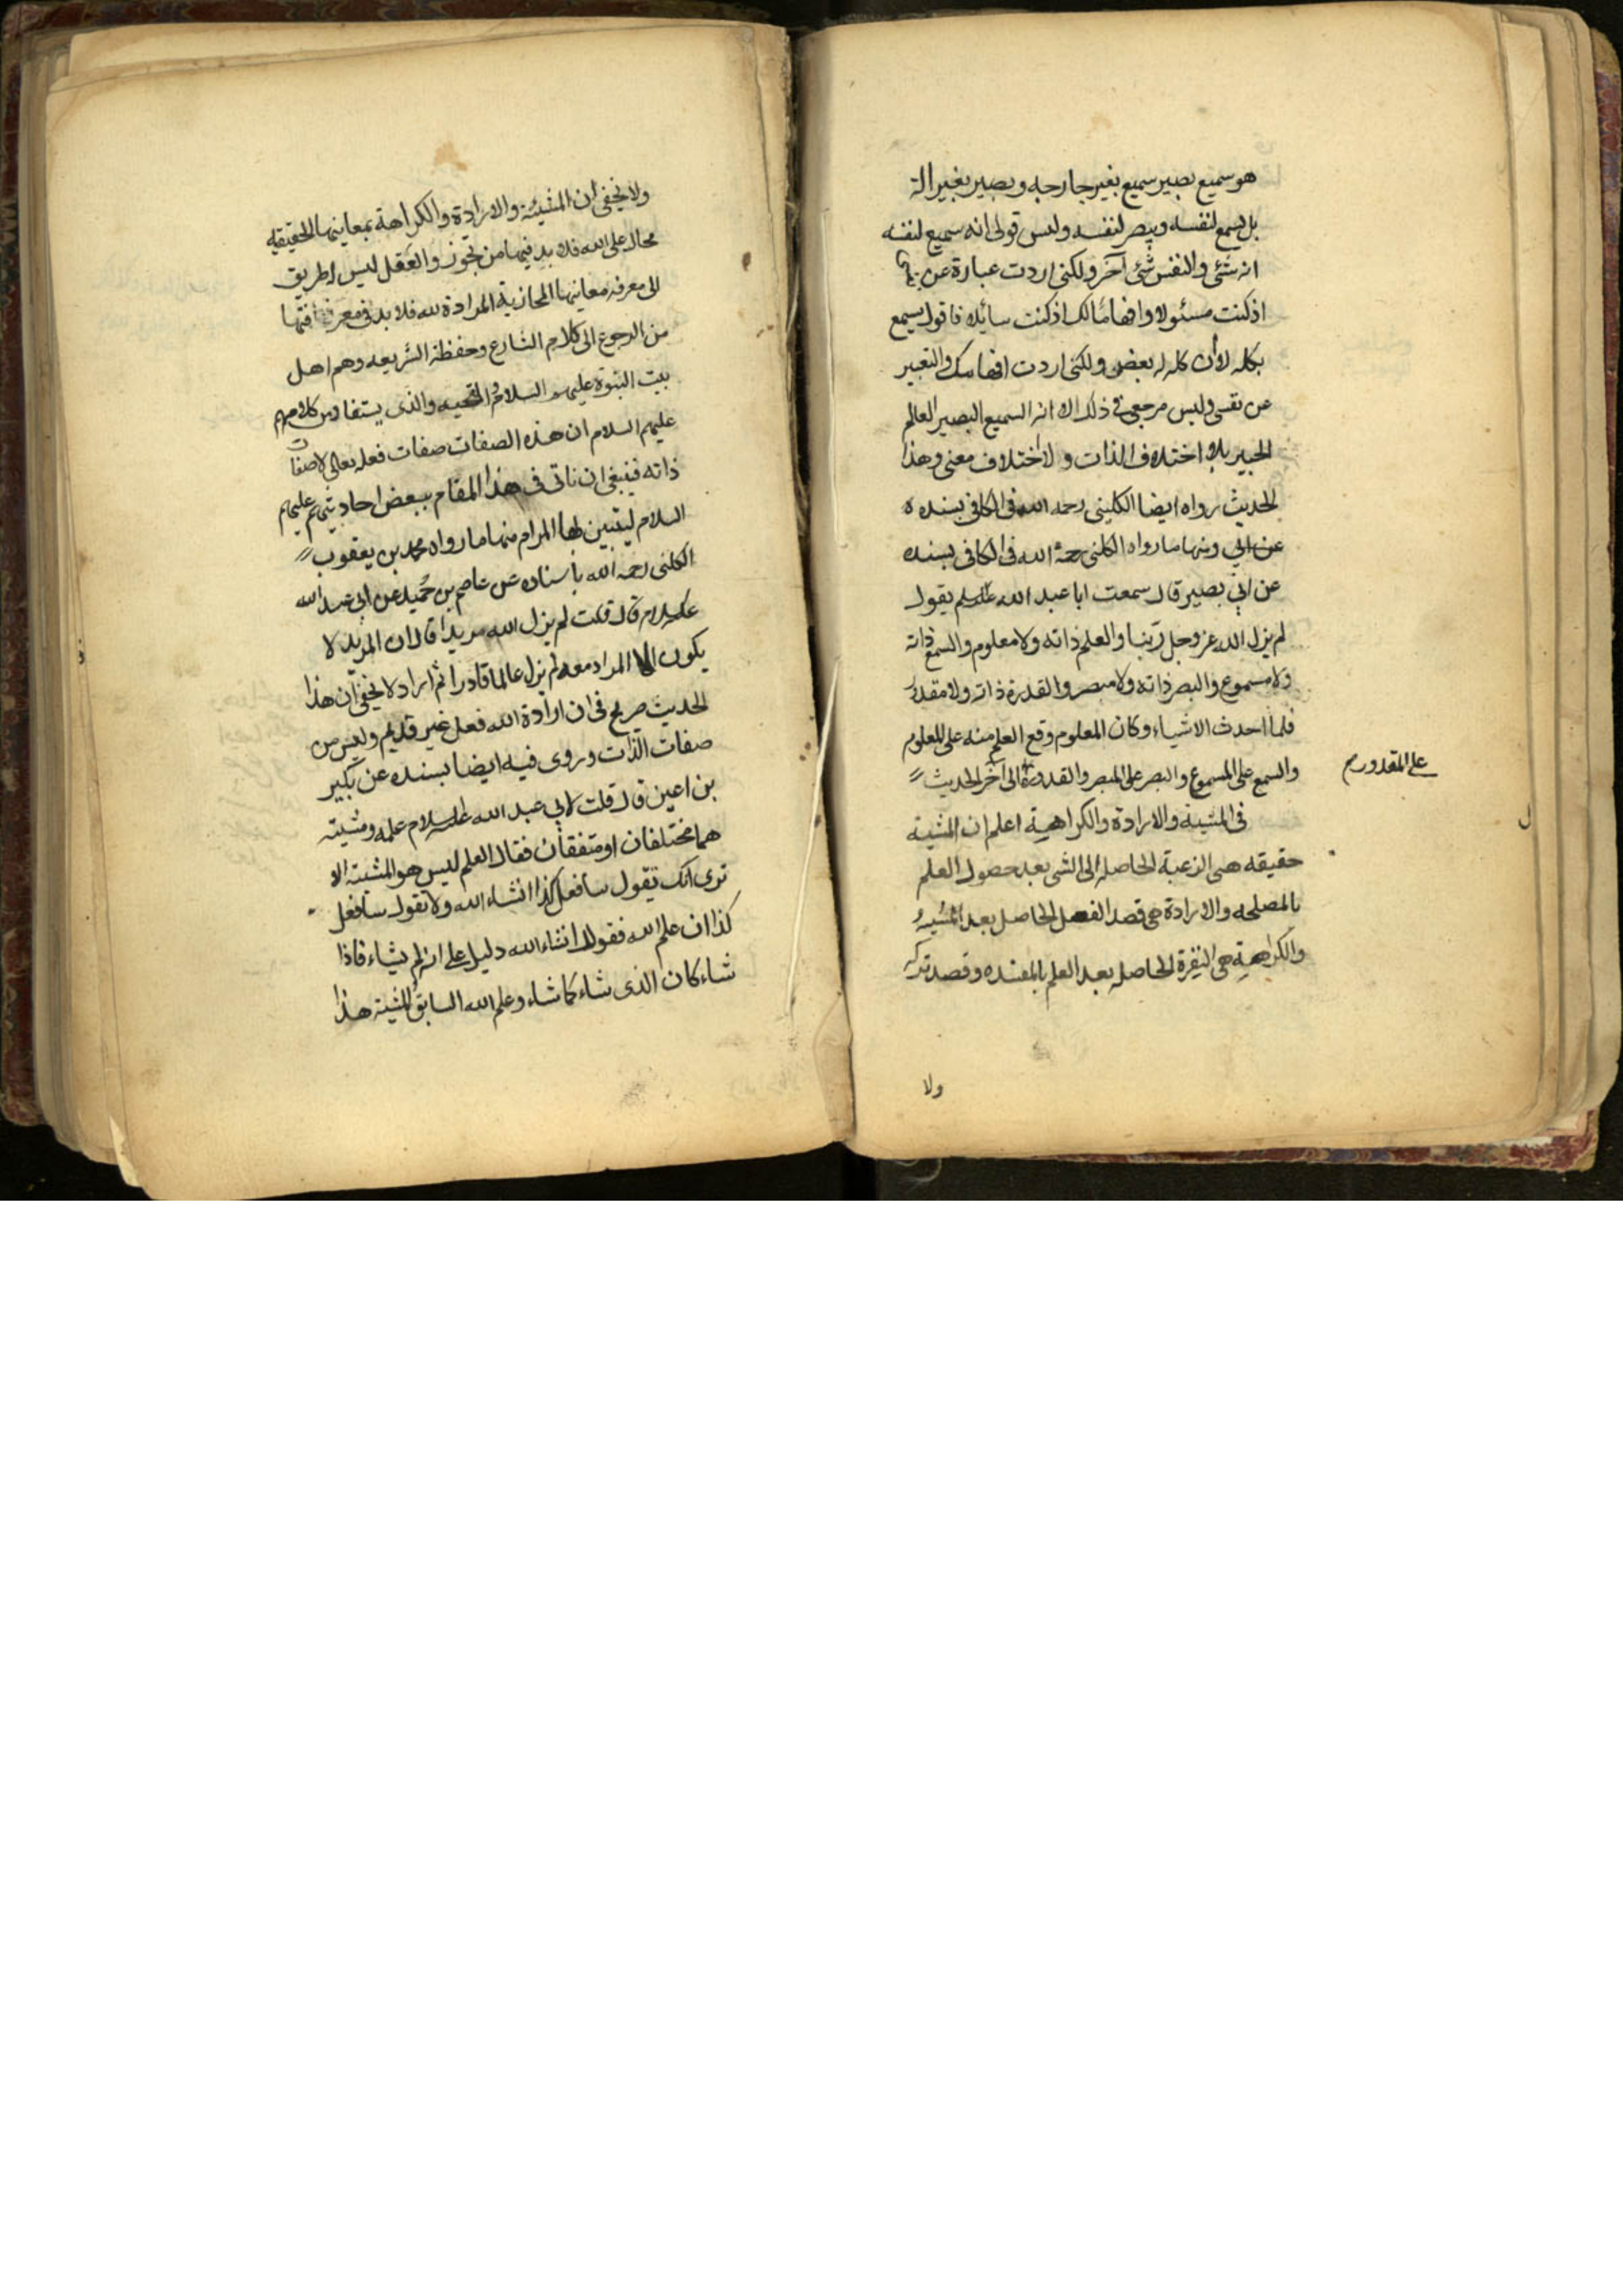 هو سميع بصير سميع بغير جارحه وبصير بغير الة
بل يسمع لنفسه ويبصر لنفسه وليس قولى انه سميع لنفسه
انه شئ والنفس شئ آخر ولكنى اردت عبارة عن
اذ كنت مسئولا وافهاما لك اذ كنت سائلا فاقول يسمع
بكله لا ان كله له بعض ولكنى اردت افهامك والتعبير
عن نفسى وليس مرجعى فى ذلك الا انه السميع البصير العالم
الخبير بلا اختلاف الذات ولا اختلاف معنى وهذا
الحديث رواه ايضا الكلينى رحمه الله فى الكافى بسنده
عن ابى ومنها ما رواه الكلنى رحمه الله فى الكافى بسنده
عن ابى بصير قال سمعت ابا عبد الله علیه السلم يقول
لم يزل الله عز وجل ربنا والعلم ذاته ولا معلوم والسمع ذاته
ولا مسموع والبصر ذاته ولا مبصر والقدرة ذاته ولا مقدور
فلما احدث الاشياء وكان المعلوم وقع العلم منه على المعلوم
والسمع على المسموع والبصر على المبصر والقدرة الى آخر الحديث
على المقدور
فى المشية والارادة والكراهية اعلم ان المشية
حقيقه هى الرغبة الحاصله الى الشى بعد حصول العلم
بالمصلحه والارادة هى قصد الفعل الحاصل بعد المشية
والكراهية هى النفرة الحاصله بعد العلم بالمفسده وقصد تركه
ولا
ولا يخفى ان المشيئة والارادة والكراهة بمعاينها الحقيقيه
محال على الله فلا بد فيها من تجوز والعقل ليس له طريق
الى معرفه معاينها المجازية المرادة لله فلا بد فى معرفتها
من الرجوع الى كلام الشارع وحفظة الشريعه وهم اهل
بيت النبوة عليهم السلام والتحيه والذى يستفاد من كلامهم
عليهم السلام ان هذه الصفات صفات فعله تعالى لا صفات
ذاته فينبغى ان ناتى فى هذا المقام ببعض احاديثهم عليهم
السلام ليتبين بها المرام منها ما رواه محمد بن يعقوب
الكلنى رحمه الله باسناده عن عاصم بن حُميد عن ابى عبد الله
عليه السلام قال قلت لم يزل الله مريدا قال ان المريد لا
يكون الا المراد معه لم يزل عالما قادرا ثم اراد لا يخفى ان هذا
الحديث صريح فى ان ارادة الله فعل غير قديم وليس من
صفات الذات وروى فيه ايضا بسنده عن بكير
بن اعين قال قلت لابى عبد الله عليه السلام علمه ومشيته
هما مختلفان او متفقان فقال العلم ليس هو المشية الا
ترى انك تقول سافعل كذا انشاء الله ولا تقول سافعل
كذا ان علم الله فقولك انشاء الله دليل على انه لم يشاء فاذا
شاء كان الذى شاء كما شاء وعلم الله السابق المشية هذا